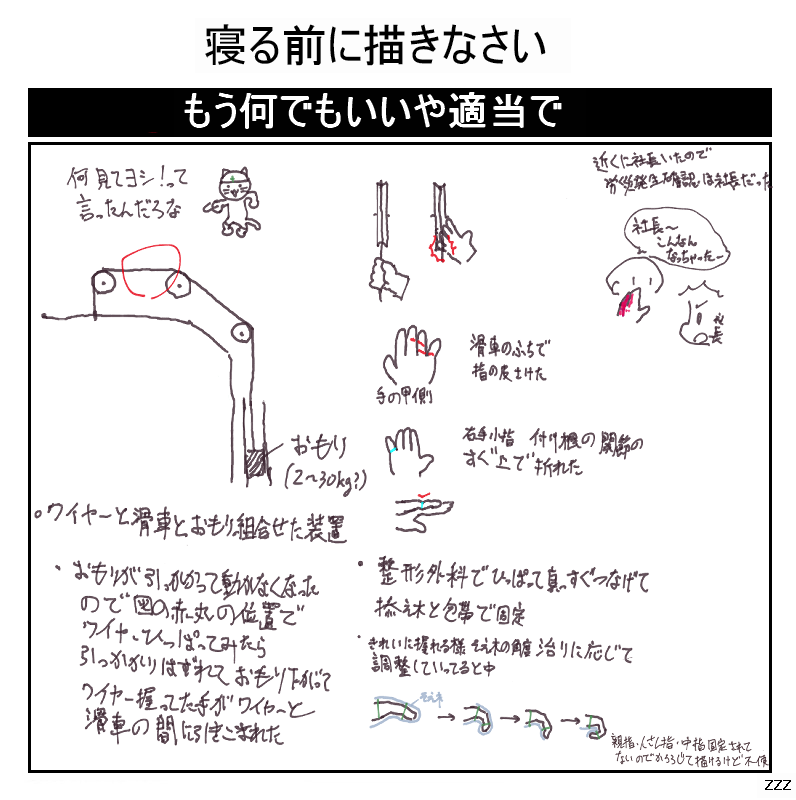 寝る前に描きなさい
もう何でもいいや適当で
何見てヨシ！って
言ったんだろな
近くに社長いたので
労災発生確認は社長だった
社長〜
こんなん
なっちゃったー
社長
滑車のふちで
指の皮さけた
手の甲側
右手小指 付け根の関節の
すぐ上で折れた
おもり
(2〜30kg?)
○ワイヤーと滑車とおもり組合せた装置
・おもりが引っかかって動かなくなった
ので図の赤丸の位置で
ワイヤーひっぱってみたら
引っかかりはずれておもり下がって
ワイヤー握ってた手がワイヤーと
滑車の間にまきこまれた
・整形外科でひっぱって真っすぐつなげて
添え木と包帯で固定
・きれいに握れる様そえ木の角度治りに応じて
調整していってると中
そえ木
→ → →
親指・人さし指・中指固定されて
ないのでかろうじて描けるけど不便
ZZZ